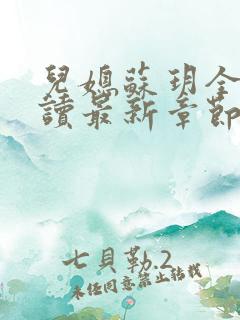 兒媳蘇玥全
讀最新章節
七貝勒.2
未經同意禁止轉載